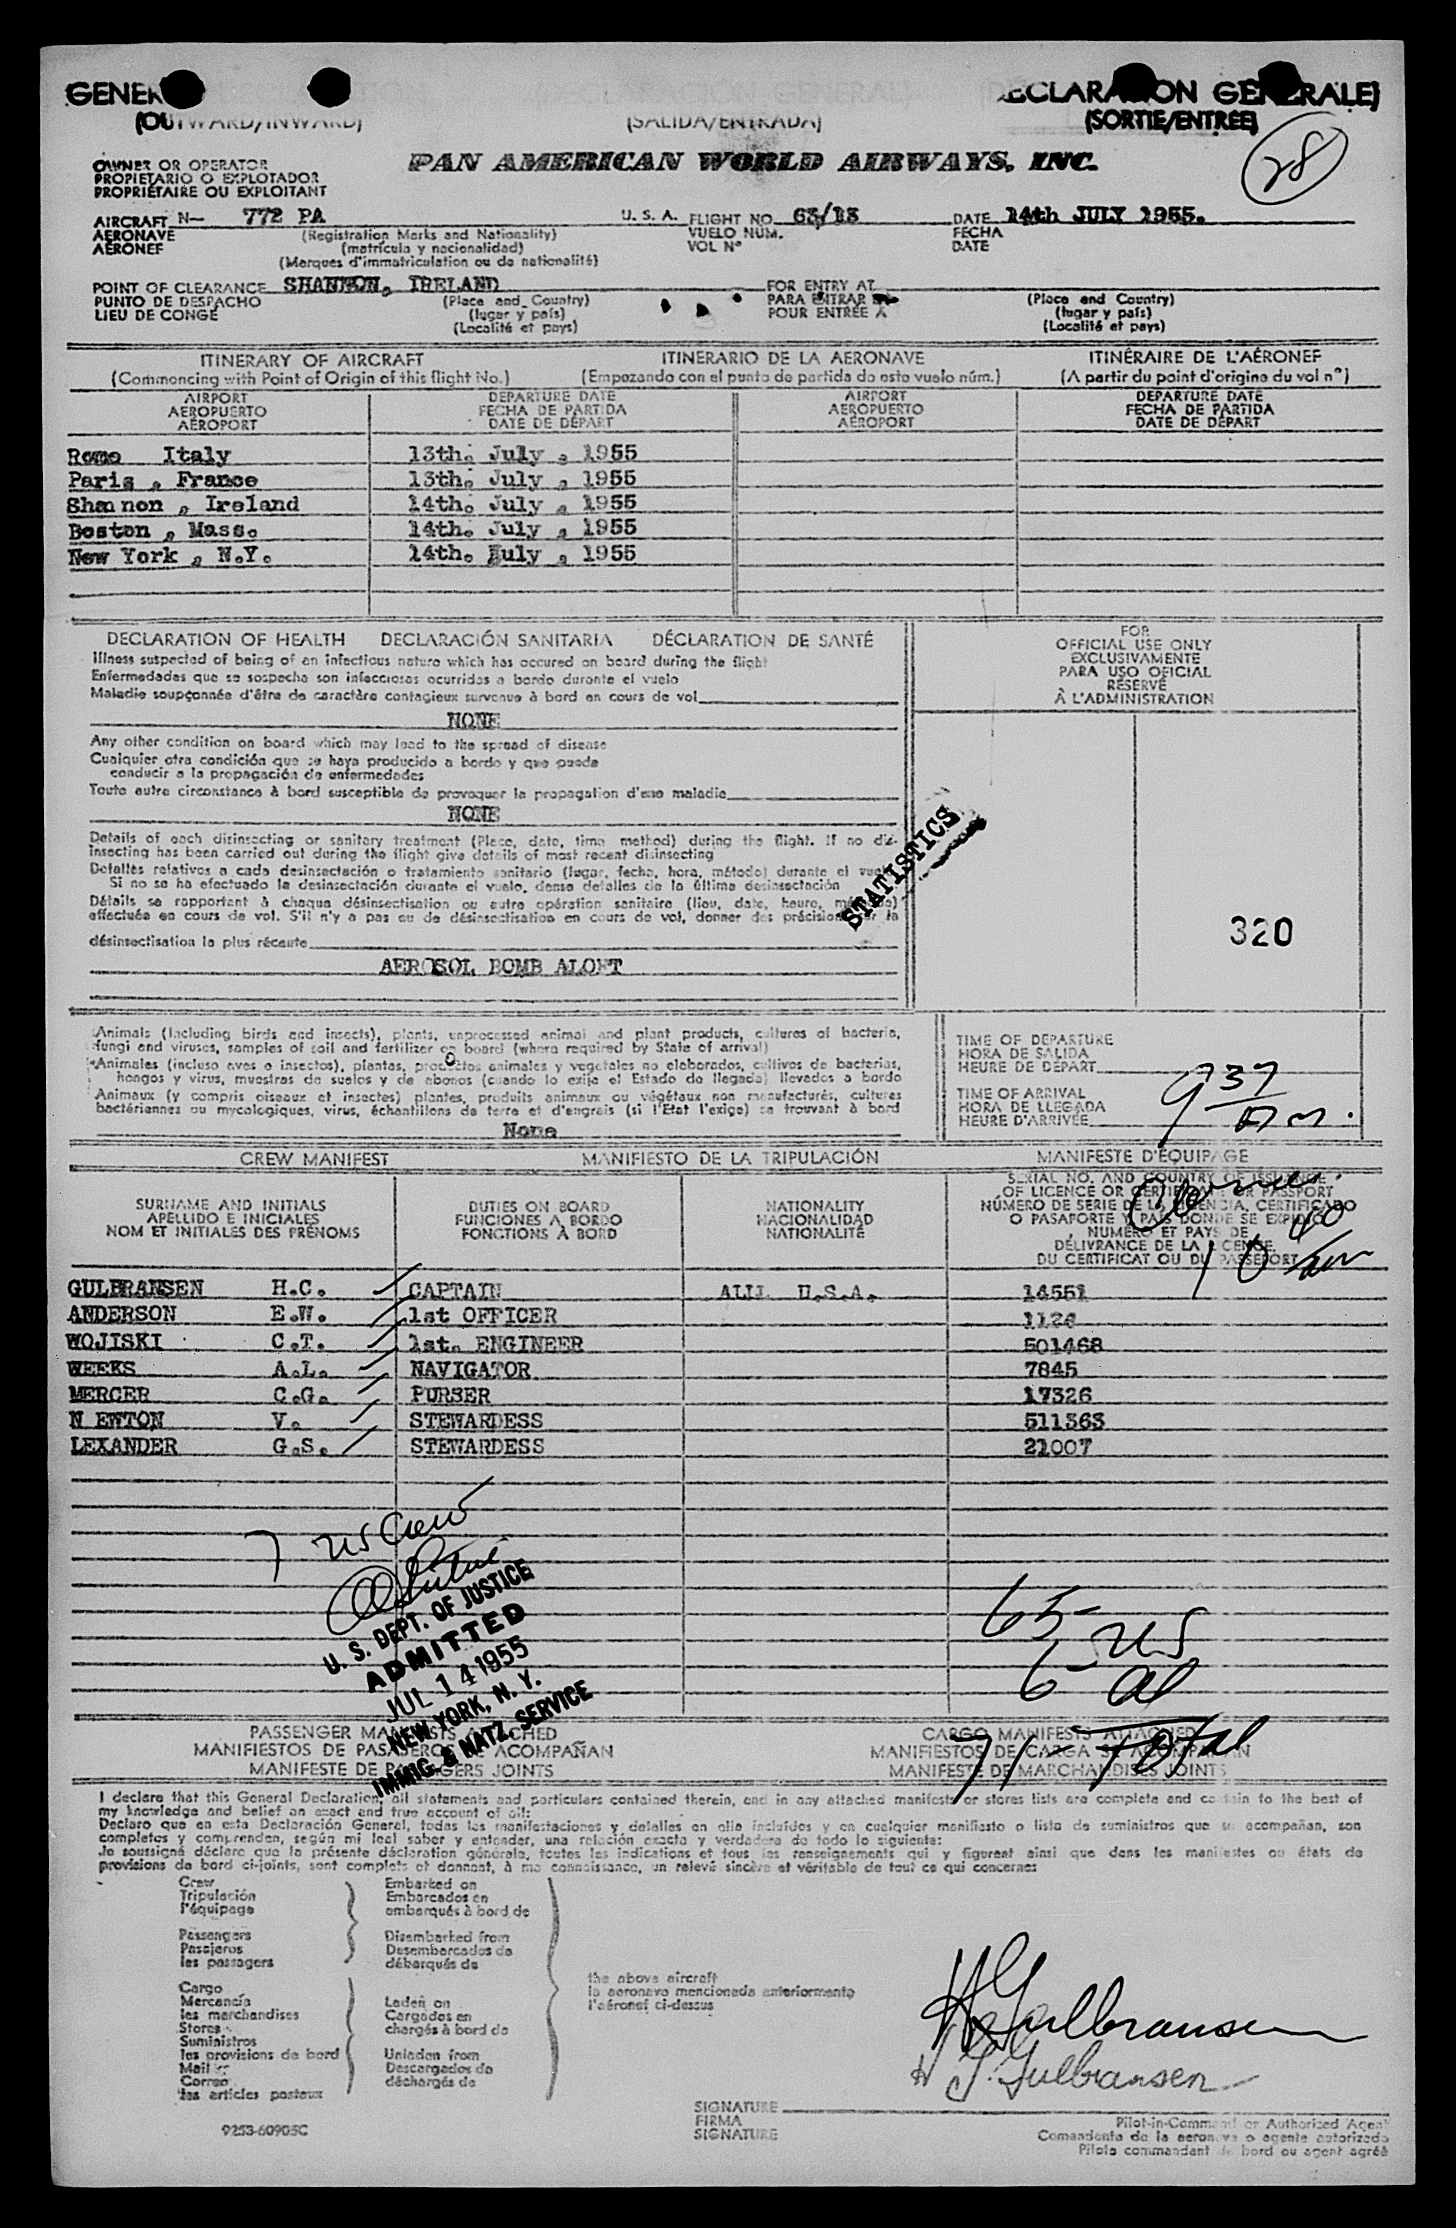 (DECLARACION GENERAL) DECLARATION GENERALE)
(OUTWARD/INWARD) (SALIDA/ENTRADA) (SORTIE/ENTREE)
28
OWNER OR OPERATOR PAN AMERICAN WORLD AIRWAYS, INC.
PROPIETARIO O EXPLOTADOR
PROPRIÉTAIRE OU EXPLOITANT
AIRCRAFT N- 772 PA U. S. A. FLIGHT NO. 63/13 DATE 14th JULY 1955.
AERONAVE (Registration Marks and Nationality) VUELO NÚM. FECHA
AÉRONEF (matrícula y nacionalidad) VOL Nº DATE
(Marques d'immatriculation ou de nationalité)
POINT OF CLEARANCE SHANNON, IRELAND FOR ENTRY AT
PUNTO DE DESPACHO (Place and Country) PARA ENTRAR EN (Place and Country)
LIEU DE CONGÉ (lugar y país) POUR ENTRÉE A (lugar y país)
(Localité et pays) (Localité et pays)
ITINERARY OF AIRCRAFT ITINERARIO DE LA AERONAVE ITINÉRAIRE DE L'AÉRONEF
(Commencing with Point of Origin of this flight No.) (Empezando con el punto de partida de este vuelo núm.) (A partir du point d'origine du vol nº)
AIRPORT DEPARTURE DATE AIRPORT DEPARTURE DATE
AEROPUERTO FECHA DE PARTIDA AEROPUERTO FECHA DE PARTIDA
AÉROPORT DATE DE DÉPART AÉROPORT DATE DE DÉPART
Rome Italy 13th. July , 1955
Paris , France 13th. July , 1955
Shannon , Ireland 14th. July , 1955
Boston , Mass. 14th. July , 1955
New York , N.Y. 14th. July , 1955
DECLARATION OF HEALTH DECLARACIÓN SANITARIA DÉCLARATION DE SANTÉ
Illness suspected of being of an infectious nature which has occured on board during the flight
Enfermedades que se sospecha son infecciosas ocurridas a bordo durante el vuelo
Maladie soupçonnée d'être de caractère contagieux survenue à bord en cours de vol
NONE
Any other condition on board which may lead to the spread of disease
Cualquier otra condición que se haya producido a bordo y que pueda
conducir a la propagación de enfermedades
Toute autre circonstance à bord susceptible de provoquer la propagation d'une maladie
NONE
Details of each disinsecting or sanitary treatment (Place, date, time method) during the flight. If no dis-
insecting has been carried out during the flight give details of most recent disinsecting
Detalles relativos a cada desinsectación o tratamiento sanitario (lugar, fecha, hora, método) durante el vuelo.
Si no se ha efectuado la desinsectación durante el vuelo, dense detalles de la última desinsectación
Détails se rapportant à chaque désinsectisation ou autre opération sanitaire (lieu, date, heure, méthode)
effectuée en cours de vol. S'il n'y a pas eu de désinsectisation en cours de vol, donner des précisions sur la
désinsectisation la plus récente
AEROSOL BOMB ALOFT
FOR
OFFICIAL USE ONLY
EXCLUSIVAMENTE
PARA USO OFICIAL
RÉSERVÉ
À L'ADMINISTRATION
STATISTICS
320
Animals (Including birds and insects), plants, unprocessed animal and plant products, cultures of bacteria,
fungi and viruses, samples of soil and fertilizer on board (where required by State of arrival)
*Animales (incluso aves o insectos), plantas, productos animales y vegetales no elaborados, cultivos de bacterias,
hongos y virus, muestras de suelos y de abonos (cuando lo exija el Estado de llegada) llevados a bordo
Animaux (y compris oiseaux et insectes) plantes, produits animaux ou végétaux non manufacturés, cultures
bactériennes ou mycologiques, virus, échantillons de terre et d'engrais (si l'Etat l'exige) se trouvant à bord
None
TIME OF DEPARTURE
HORA DE SALIDA
HEURE DE DÉPART
TIME OF ARRIVAL 9 37 Am.
HORA DE LLEGADA
HEURE D'ARRIVÉE
CREW MANIFEST MANIFIESTO DE LA TRIPULACIÓN MANIFESTE D'ÉQUIPAGE
SURNAME AND INITIALS DUTIES ON BOARD NATIONALITY SERIAL NO. AND COUNTRY OF ISSUANCE
APELLIDO E INICIALES FUNCIONES A BORDO NACIONALIDAD OF LICENCE OR CERTIFICATE OR PASSPORT
NOM ET INITIALES DES PRÉNOMS FONCTIONS À BORD NATIONALITÉ NÚMERO DE SERIE DE LA LICENCIA, CERTIFICADO
O PASAPORTE Y PAIS DONDE SE EXPIDIÓ
NUMÉRO ET PAYS DE
DÉLIVRANCE DE LA LICENSE,
DU CERTIFICAT OU DU PASSEPORT
10 40 am
GULBRANSEN H.C. CAPTAIN ALL U.S.A. 14551
ANDERSON E.W. 1st OFFICER 1124
WOJISKI C.T. 1st. ENGINEER 501468
WEEKS A.L. NAVIGATOR 7845
MERCER C.G. PURSER 17326
N EWTON V. STEWARDESS 511363
LEXANDER G.S. STEWARDESS 21007
7 US Crew
U. S. DEPT. OF JUSTICE
ADMITTED
JUL 14 1955
NEW YORK, N. Y.
IMMIG. & NATZ. SERVICE
65- US
6- al
71- total
PASSENGER MANIFESTS ATTACHED CARGO MANIFESTS ATTACHED
MANIFIESTOS DE PASAJEROS SE ACOMPAÑAN MANIFIESTOS DE CARGA SE ACOMPAÑAN
MANIFESTE DE PASSAGERS JOINTS MANIFESTE DE MARCHANDISES JOINTS
I declare that this General Declaration, all statements and particulars contained therein, and in any attached manifests or stores lists are complete and contain to the best of
my knowledge and belief an exact and true account of all:
Declaro que en esta Declaración General, todas las manifestaciones y detalles en ella incluidos y en cualquier manifiesto o lista de suministros que se acompañan, son
completos y comprenden, según mi leal saber y entender, una relación exacta y verdadera de todo lo siguiente:
Je soussigné déclare que la présente déclaration générale, toutes les indications et tous les renseignements qui y figurent ainsi que dans les manifestes ou états de
provisions de bord ci-joints, sont complets et donnent, à ma connaissance, un relevé sincère et véritable de tout ce qui concerne:
Crew Embarked on
Tripulación Embarcados en
l'équipage embarqués à bord de
Passengers Disembarked from
Pasajeros Desembarcados de
les passagers débarqués de
the above aircraft
la aeronave mencionada anteriormente
l'aéronef ci-dessus
Cargo
Mercancía Laden on
les marchandises Cargados en
Stores chargés à bord de
Suministros
les provisions de bord Unladen from
Mail Descargados de
Correo déchargés de
les articles postaux
H Gulbransen
H. G. Gulbransen
SIGNATURE
FIRMA Pilot-in-Command or Authorized Agent
SIGNATURE Comandante de la aeronave o agente autorizado
Pilote commandant de bord ou agent agréé
9253-60905C